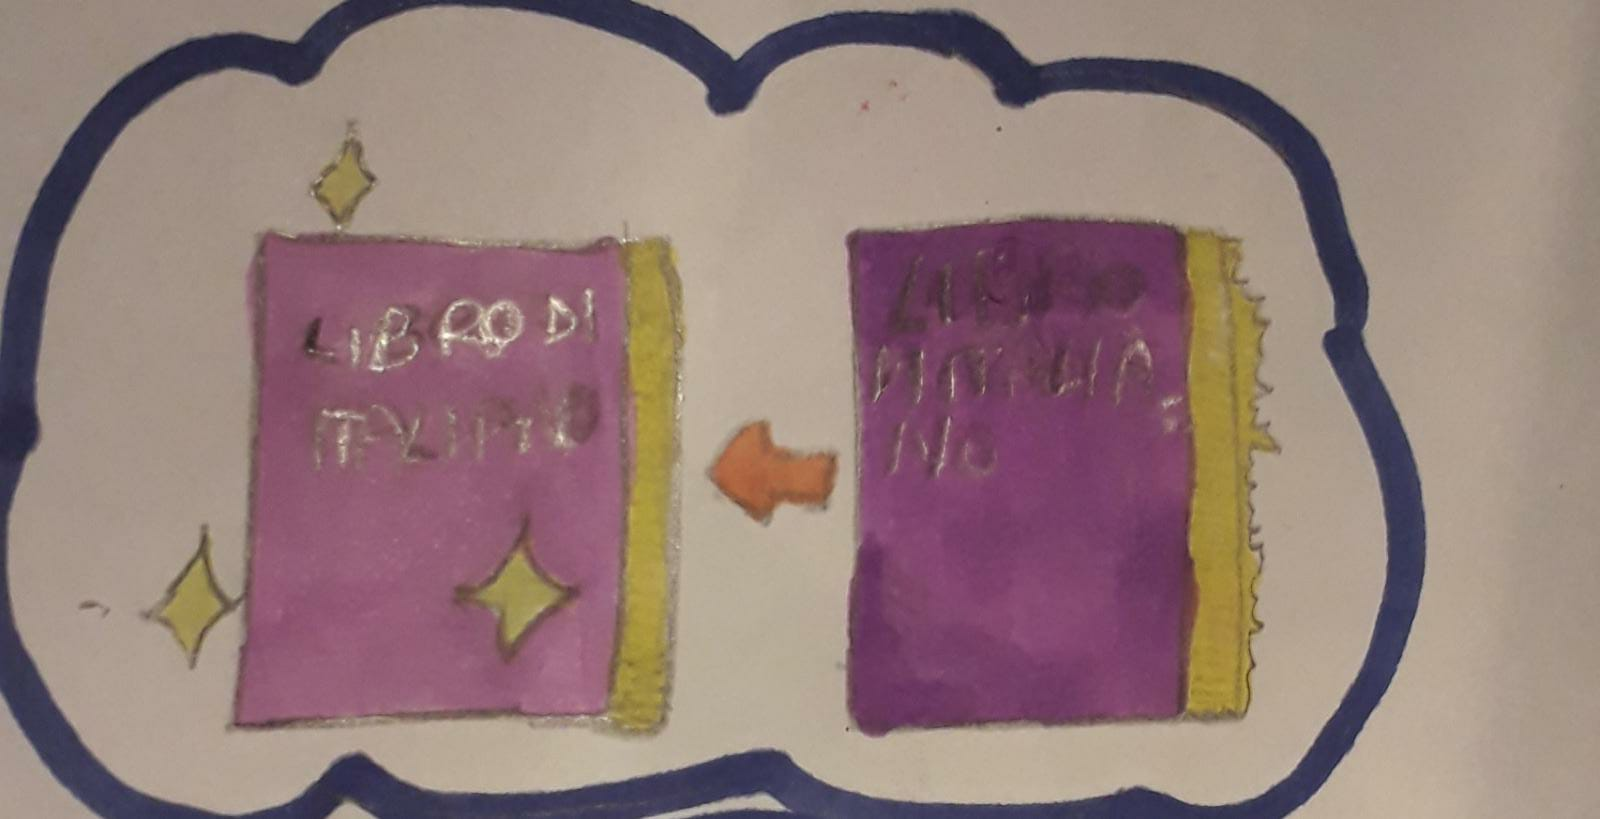 LIBRO DI
ITALIANO
LIBRO
DI ITALIA
NO